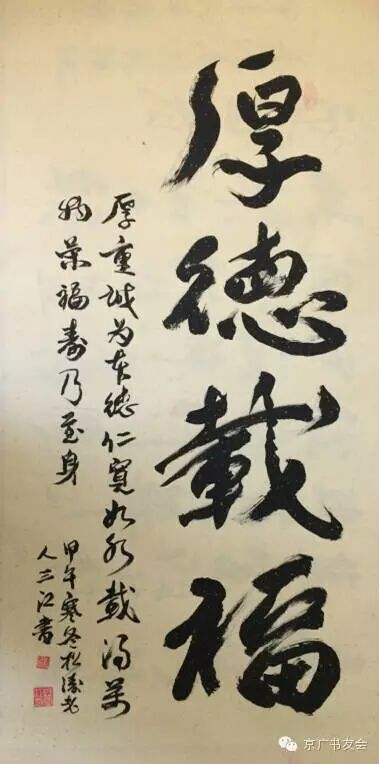 厚德載福
厚重诚为本德仁寬如水載得萬
物榮福壽乃至身
甲午寒冬松濤老
人三江書
京广书友会